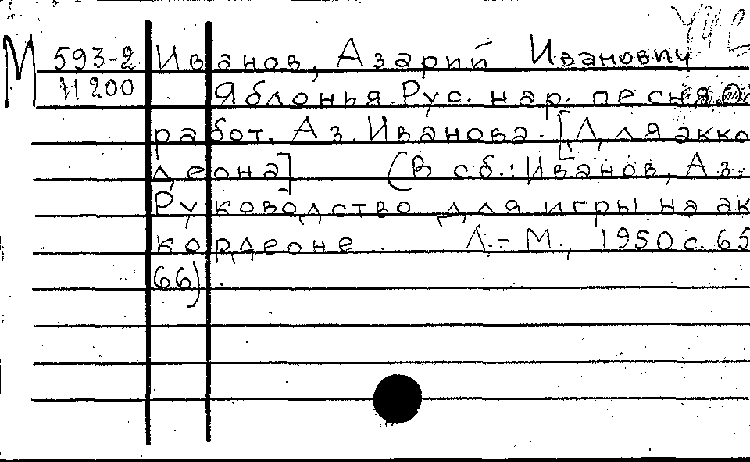 М 593-2 Иванов, Азарий Иванович
И 200 Яблонья. Рус. нар. песня. О
работ. Аз. Иванова. [Для акко
деона] (В сб.: Иванов, Аз.
Руководство для игры на ак
кордеоне. Л.-М., 1950 с. 65
66).